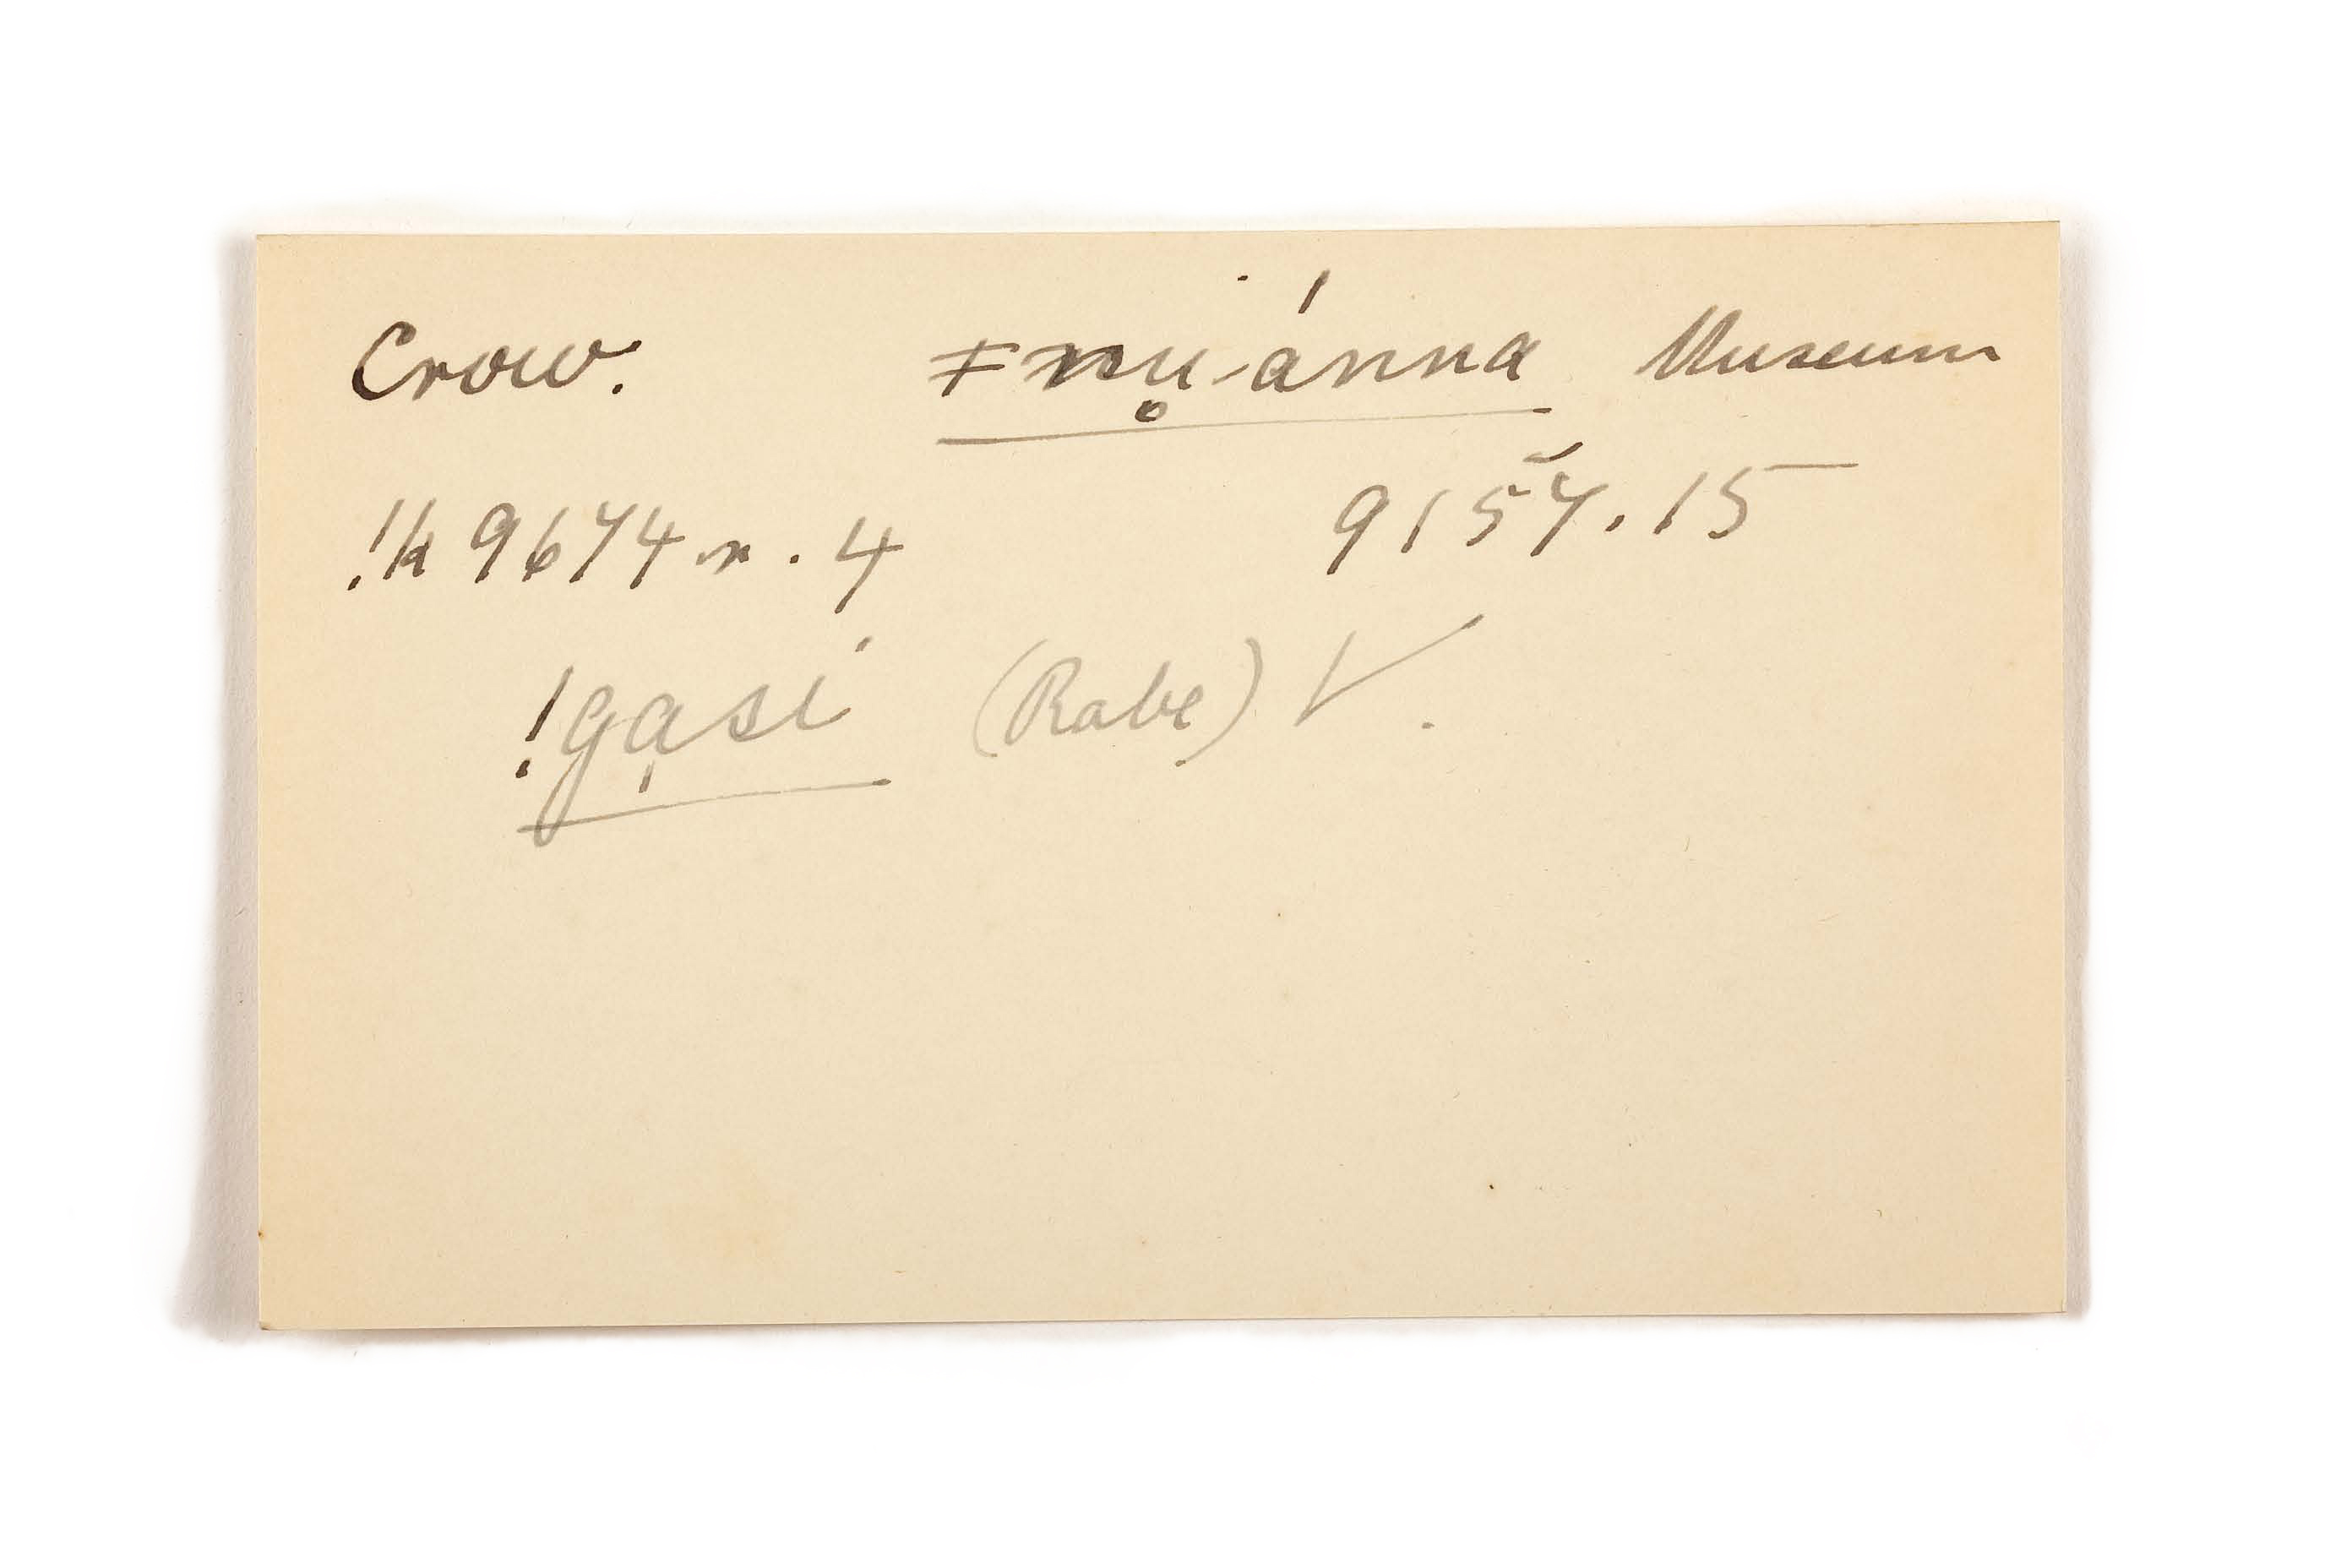 Crow. ǂnu̥-ánna Museum
!k 9674 r. 4 9157. 15
!ga̩si (Rabe) V.